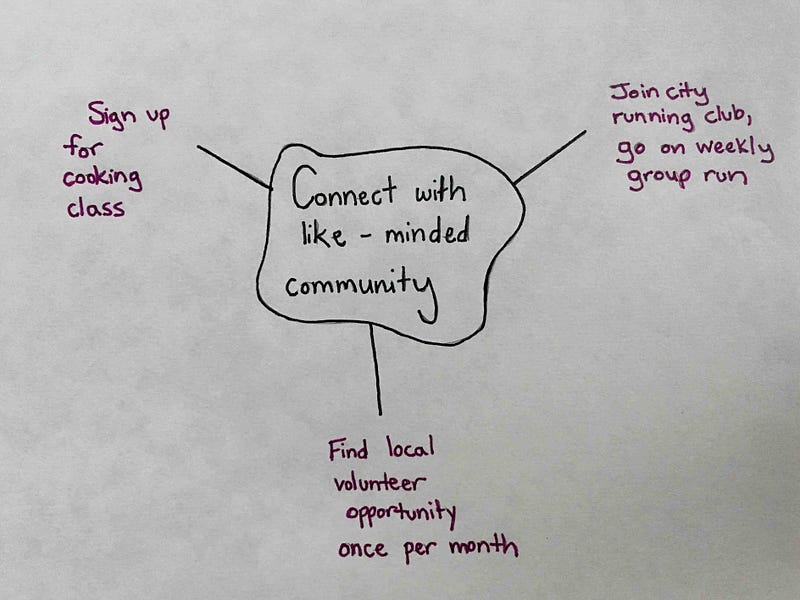 Sign up
for
cooking
class
Join city
running club,
go on weekly
group run
Connect with
like - minded
community
Find local
volunteer
opportunity
once per month